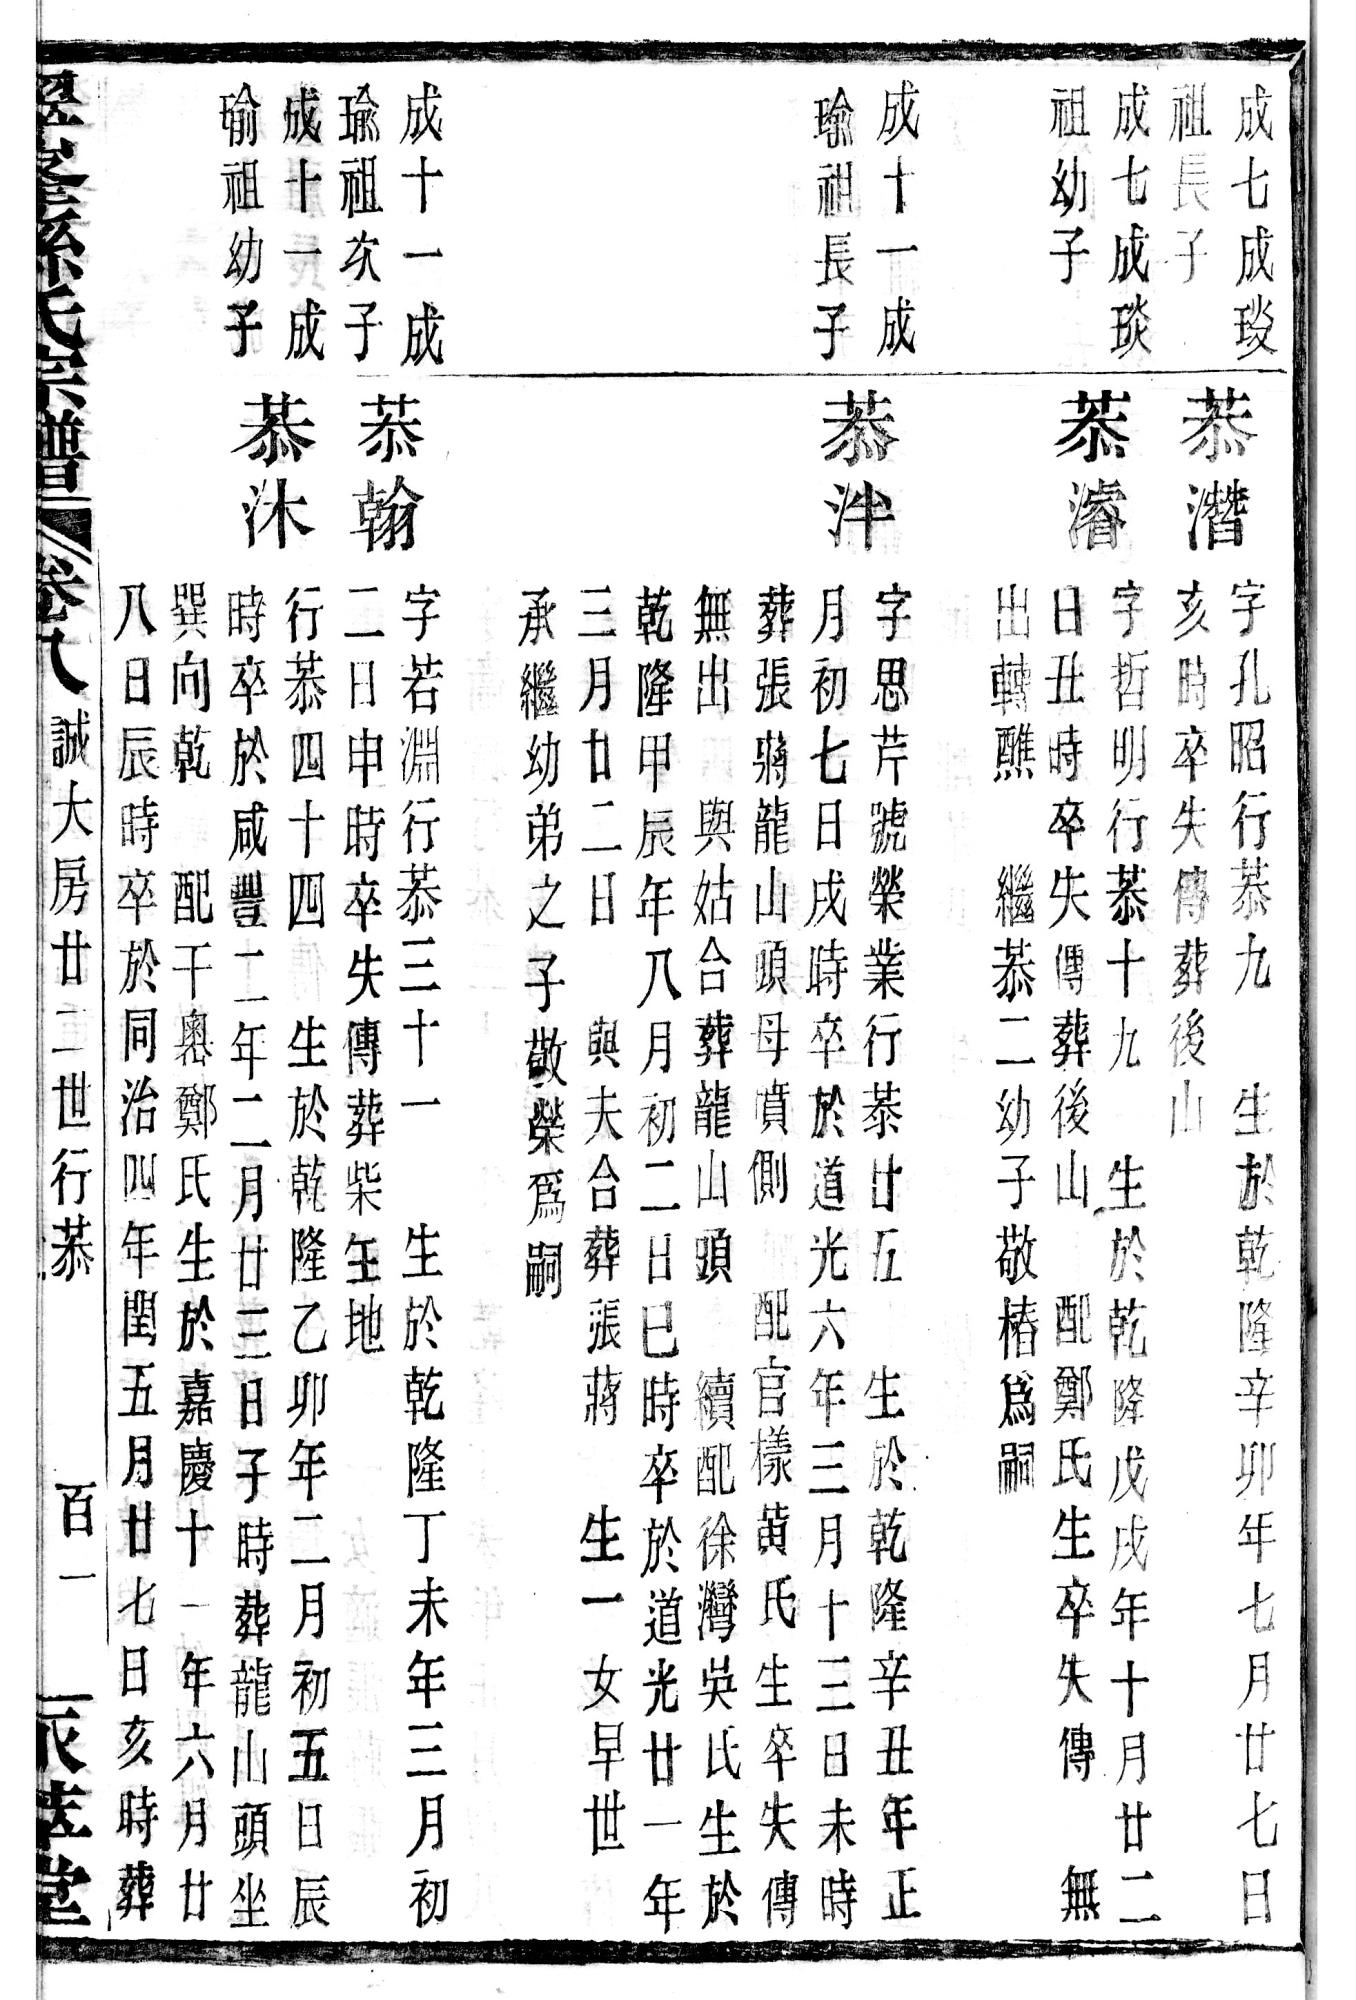 成七成琰
祖長子
恭濳
字孔昭行恭九　生於乾隆辛卯年七月廿七日
亥時卒失傳葬後山
成七成琰
祖幼子
恭濬
字哲明行恭十九　生於乾隆戊戌年十月廿二
日丑時卒失傳葬後山　配鄭氏生卒失傳　無
出轉醮　繼恭二幼子敬椿爲嗣
成十一成
瑜祖長子
恭泮
字思芹號榮業行恭廿五　生於乾隆辛丑年正
月初七日戌時卒於道光六年三月十三日未時
葬張蔣龍山頭母墳側　配官樣黄氏生卒失傳
無出　與姑合葬龍山頭　續配徐灣吳氏生於
乾隆甲辰年八月初二日巳時卒於道光廿一年
三月廿二日　與夫合葬張蔣　生一女早世
承繼幼弟之子敬榮爲嗣
成十一成
瑜祖次子
恭翰
字若淵行恭三十一　生於乾隆丁未年三月初
二日申時卒失傳葬柴㘴地
成十一成
瑜祖幼子
恭沐
行恭四十四　生於乾隆乙卯年二月初五日辰
時卒於咸豐二年二月廿三日子時葬龍山頭坐
巽向乾　配干奧鄭氏生於嘉慶十一年六月廿
八日辰時卒於同治四年閏五月廿七日亥時葬
孫氏宗譜　卷八　誠大房廿二世行恭　百一　萃堂